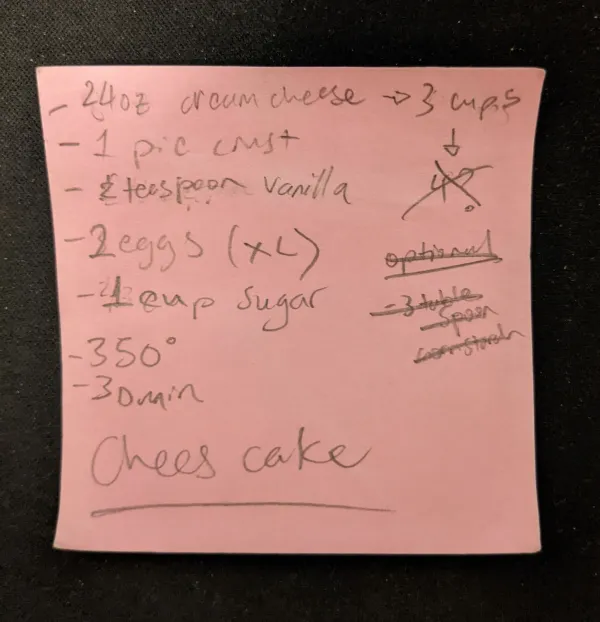 - 24oz cream cheese → 3 cups
- 1 pie crust
- teaspoon vanilla
- 2 eggs (XL)
- 1 cup sugar
- 350°
- 30 min
Chees cake
4?
optional
- 3 table
spoon
cornstarch